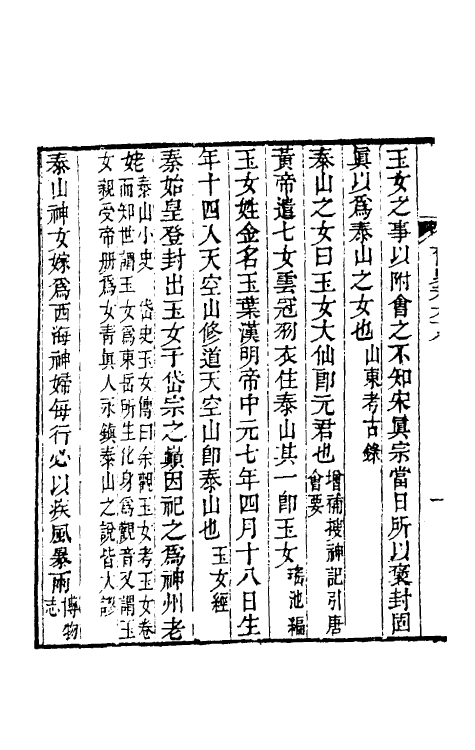 玉女之事以附會之不知宋眞宗當日所以襃封固
眞以爲泰山之女也山東考古錄
泰山之女曰玉女大仙卽元君也增補搜神記引唐
會要
黃帝遣七女雲冠羽衣住泰山其一卽玉女瑤池編
玉女姓金名玉葉漢明帝中元七年四月十八日生
年十四入天空山修道天空山卽泰山也玉女經
秦始皇登封出玉女于岱宗之巔因祀之爲神州老
姥泰山小史 岱史玉女傳曰余觀玉女考玉女卷
而知世謂玉女爲東岳所生化身爲觀音又謂玉
女親受帝册爲女靑眞人永鎭泰山之說皆大謬
泰山神女嫁爲西海神婦每行必以疾風暴雨博物
志
一